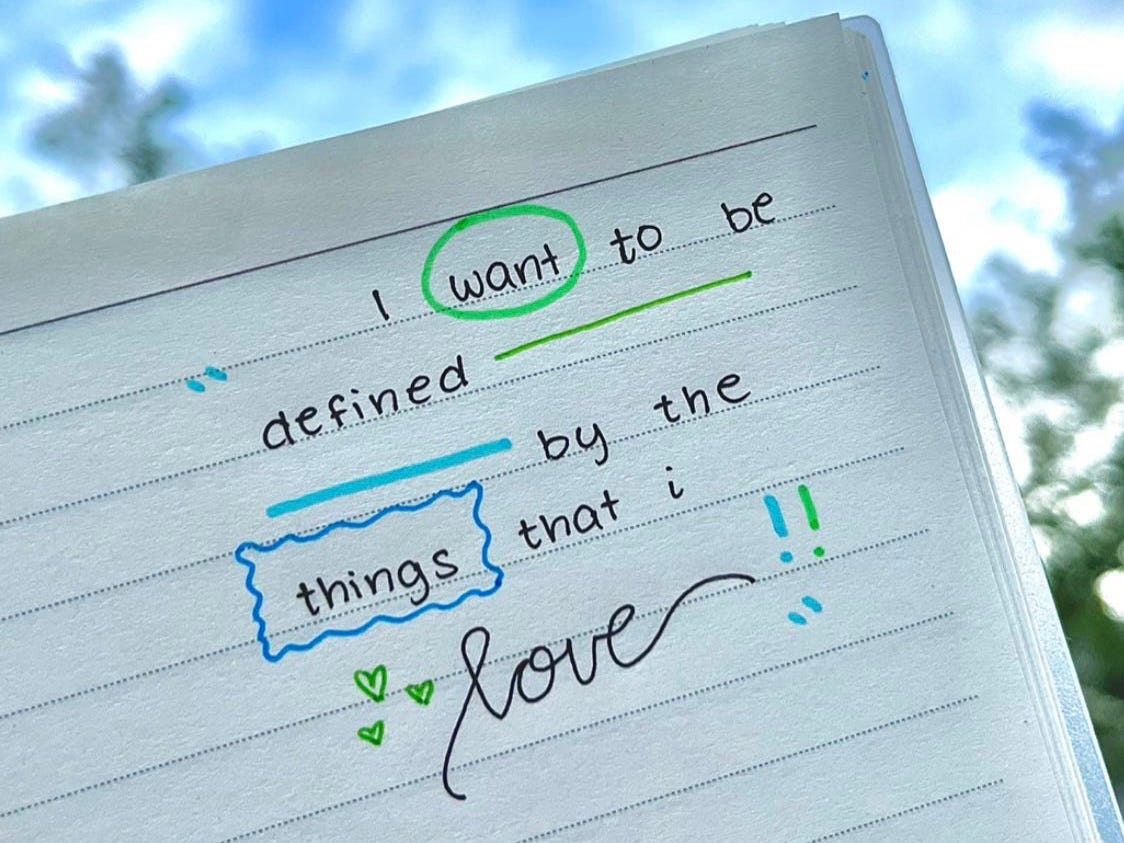 " I want to be
defined by the
things that i
love !! "